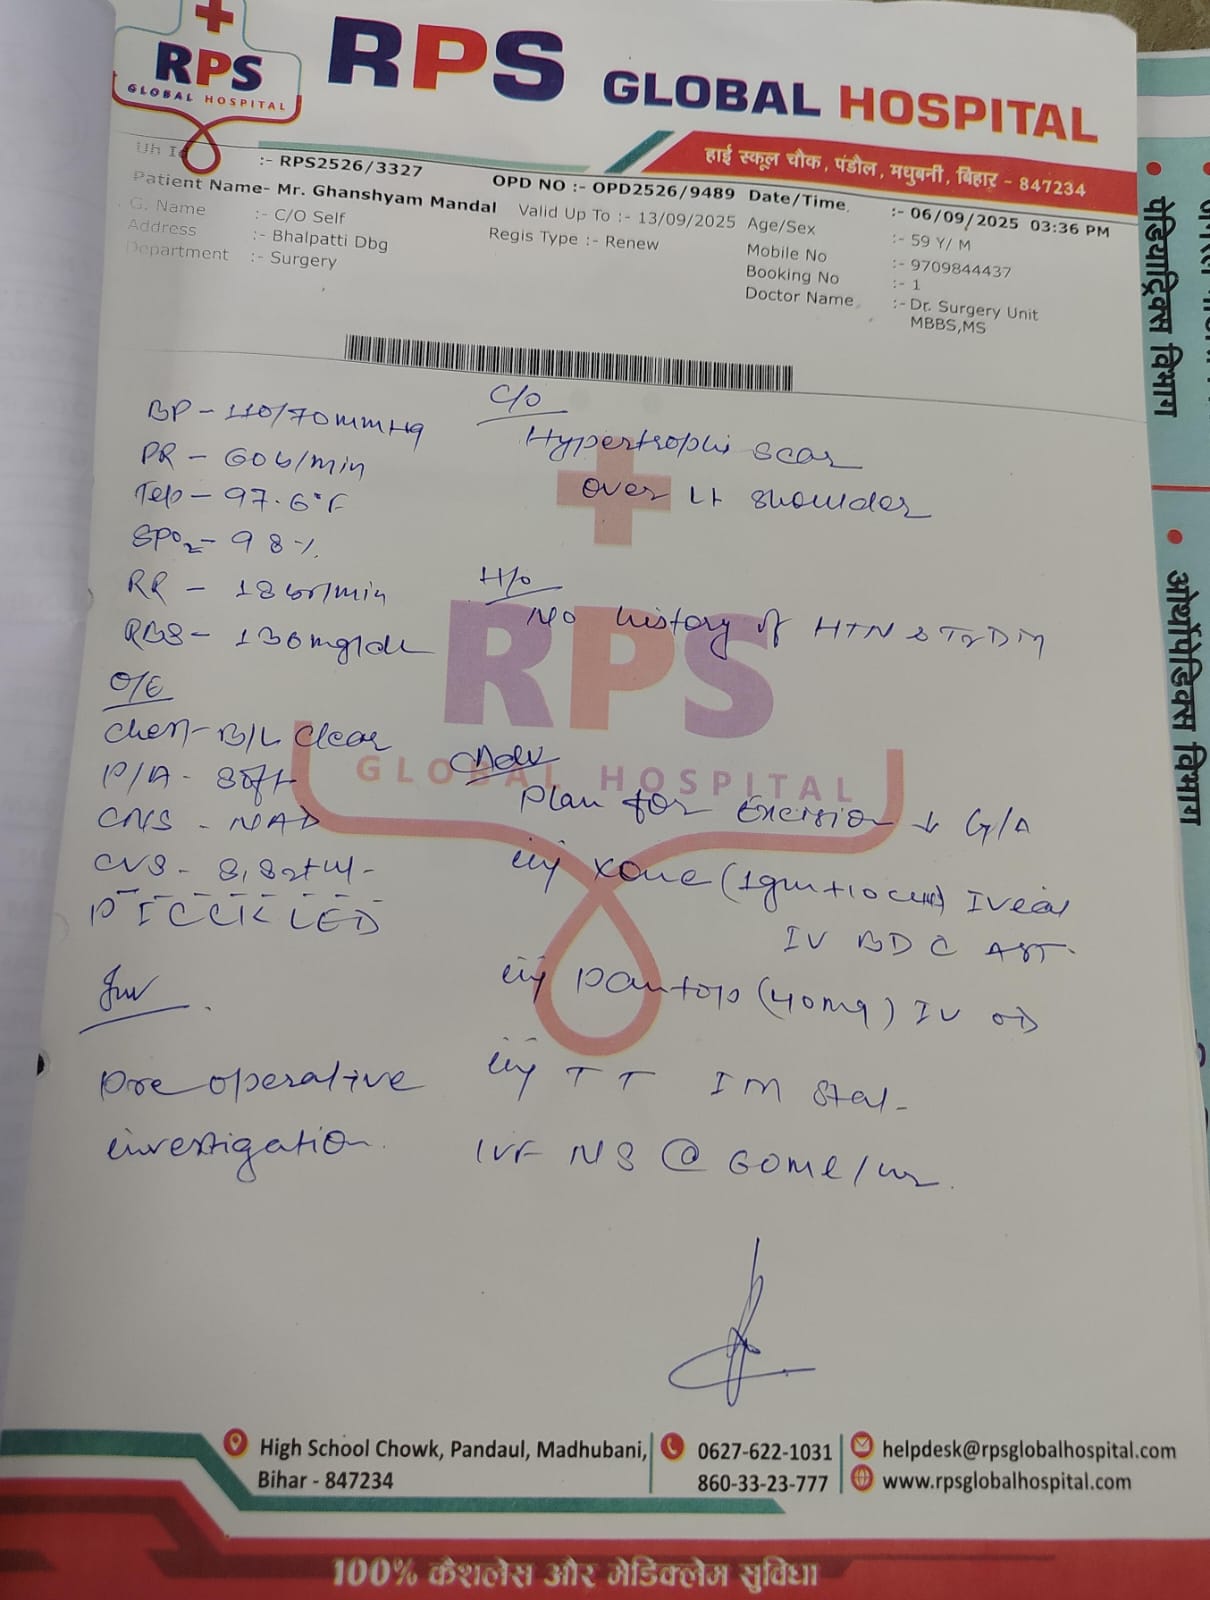 RPS
GLOBAL HOSPITAL
RPS GLOBAL HOSPITAL
हाई स्कूल चौक, पंडौल, मधुबनी, बिहार - 847234
Uh Id :- RPS2526/3327 OPD NO :- OPD2526/9489 Date/Time :- 06/09/2025 03:36 PM
Patient Name- Mr. Ghanshyam Mandal Valid Up To :- 13/09/2025 Age/Sex :- 59 Y/ M
G. Name :- C/O Self Regis Type :- Renew Mobile No :- 9709844437
Address :- Bhalpatti Dbg Booking No :- 1
Department :- Surgery Doctor Name :- Dr. Surgery Unit
MBBS,MS
BP - 110/70mmHg
PR - 60b/min
Temp - 97.6°F
SPO2 - 98%
RR - 18br/min
RBS - 130mg/dL
O/E
Chest - B/L Clear
P/A - Soft
CNS - NAD
CVS - S1S2+ve
P I C C K L E D
Inv
Pre operative
investigation.
C/o
Hypertrophi Scar
over Lt shoulder
H/o
No history of HTN & T2DM
Adv
Plan for Excision ↓ G/A
inj xone (1gm+10cc) IV
IV BD C AST.
inj pantop (40mg) IV OD
inj TT IM Stat-
IVF NS @ 60ml/hr.
RPS
GLOBAL HOSPITAL
High School Chowk, Pandaul, Madhubani,
Bihar - 847234
0627-622-1031
860-33-23-777
helpdesk@rpsglobalhospital.com
www.rpsglobalhospital.com
100% कैशलेस और मेडिक्लेम सुविधा
पेडियाट्रिक्स विभाग
ऑर्थोपेडिक्स विभाग